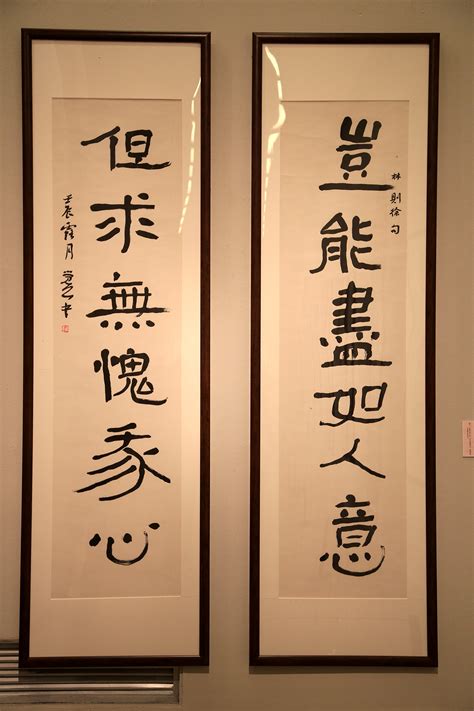 豈能盡如人意
林則徐句
但求無愧我心
壬辰霜月